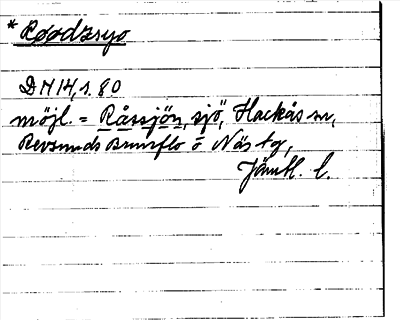 * Roodzsyo
DN 14, s. 80
möjl. = Råssjön, sjö, Hackås sn,
Revsunds Brunflo o Näs tg,
Jämtl. l.